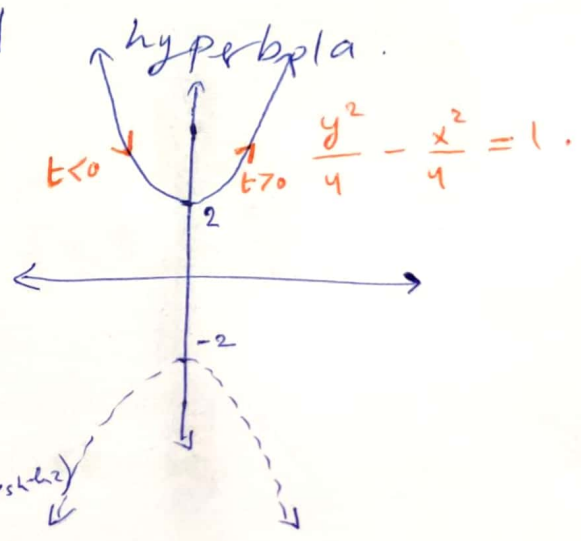 hyperbola.
t<0
t>0
y²/4 - x²/4 = 1.
2
-2